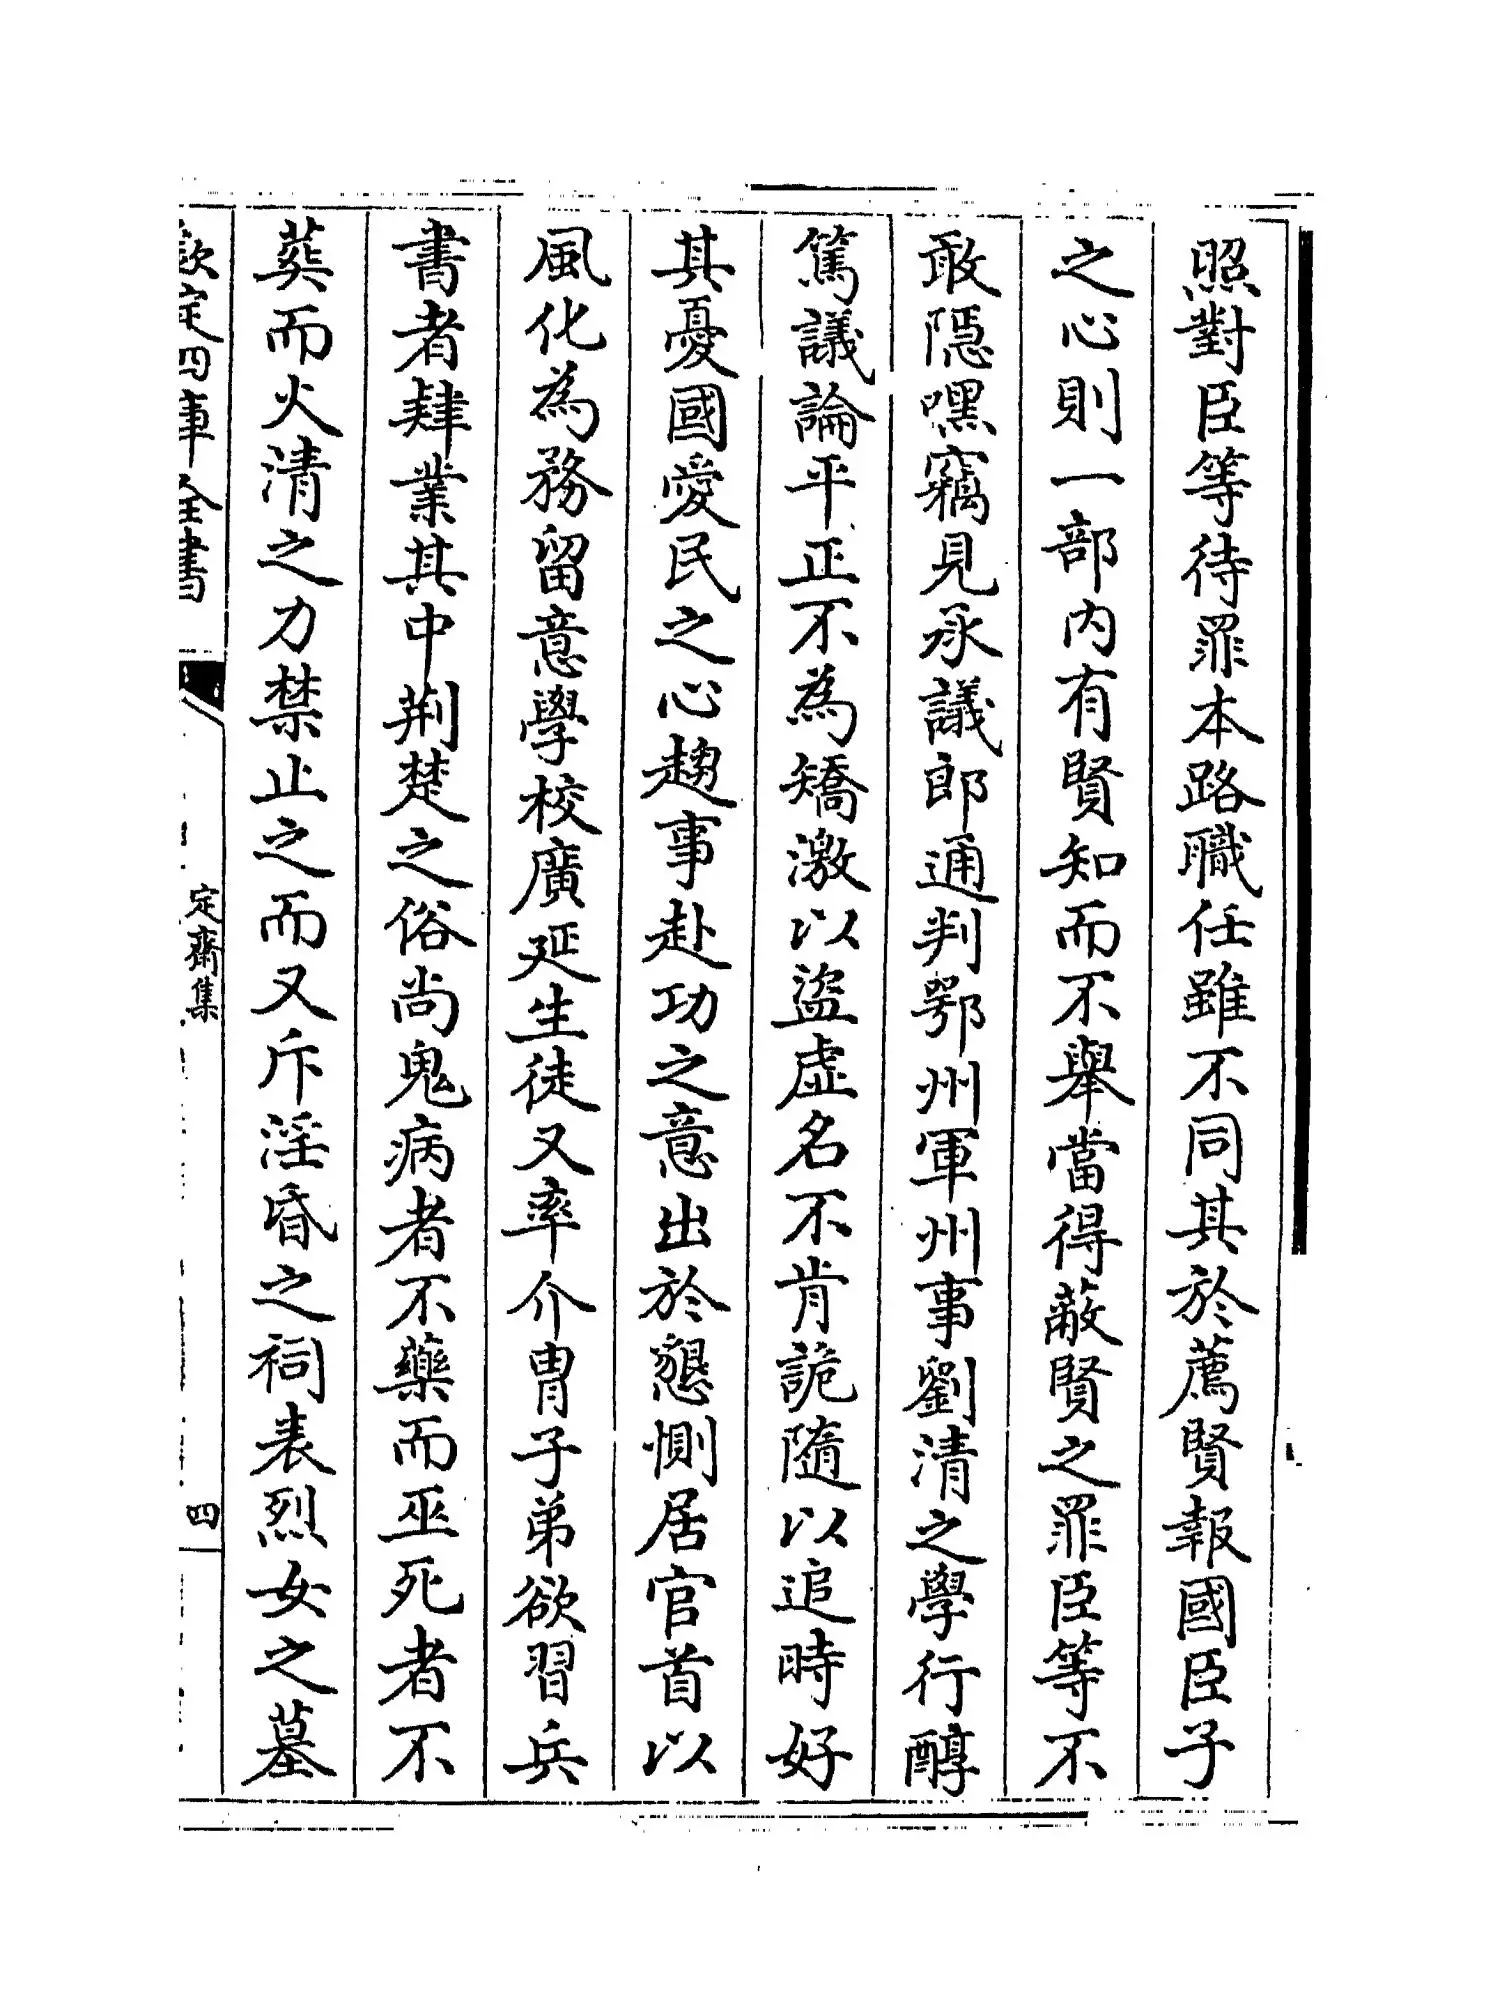 照對臣等待罪本路職任雖不同其於薦賢報國臣子
之心則一部内有賢知而不舉當得蔽賢之罪臣等不
敢隱嘿竊見承議郎通判鄂州軍州事劉清之學行醇
篤議論平正不為矯激以盜虛名不肯詭隨以追時好
其憂國愛民之心趨事赴功之意出於懇惻居官首以
風化為務留意學校廣延生徒又率介胄子弟欲習兵
書者肄業其中荆楚之俗尚鬼病者不藥而巫死者不
葬而火清之力禁止之而又斥淫昏之祠表烈女之墓
欽定四庫全書
定齋集
四